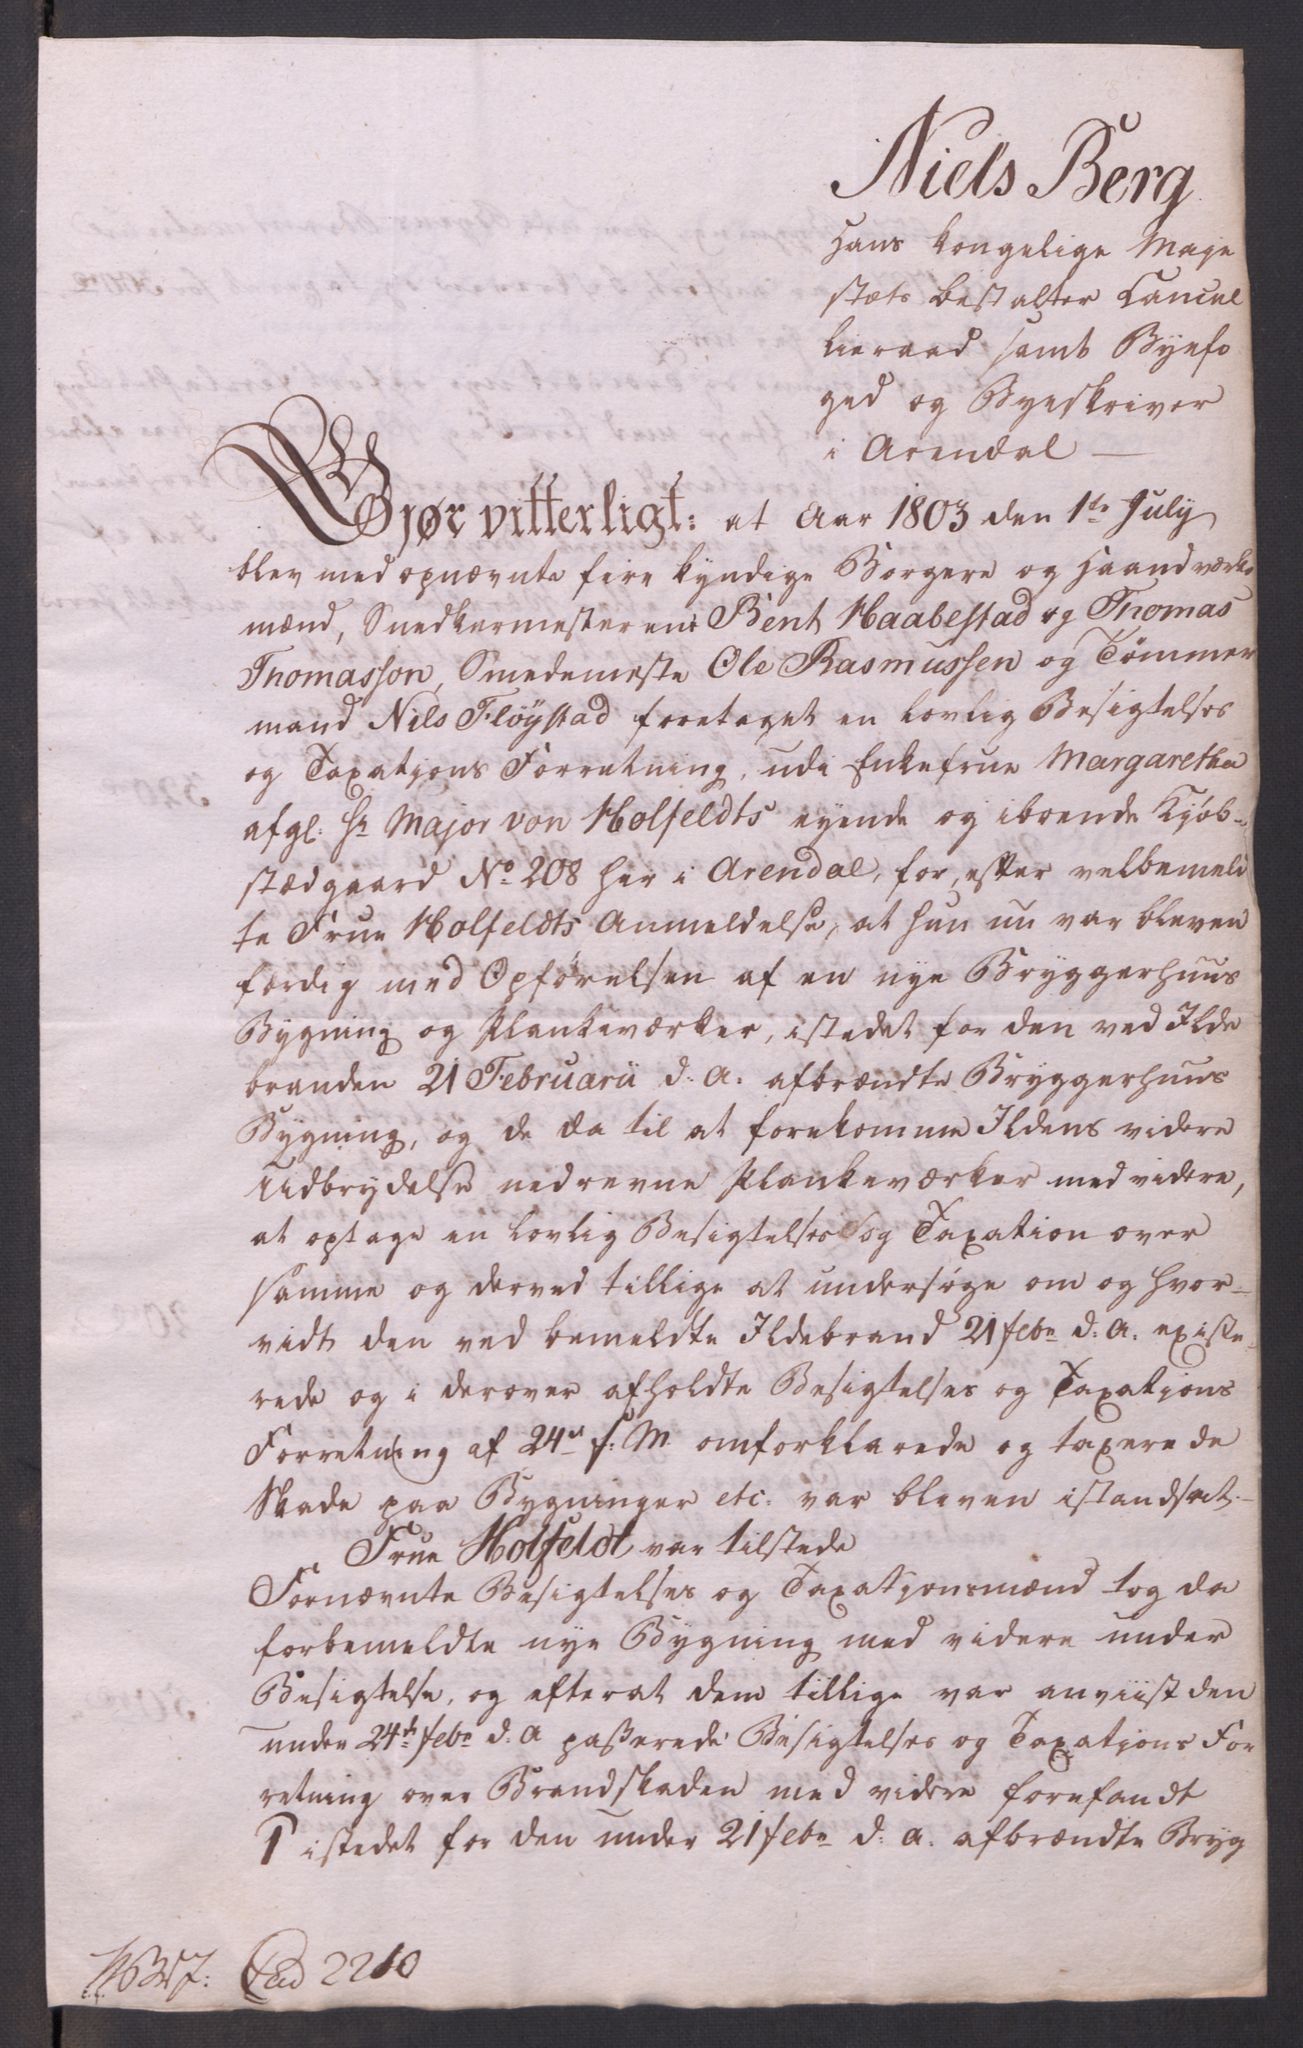 Niels Berg
Hans kongelige Maje
stæts bestalter Cancel
lieraad samt Byefo
ged og Byeskriver
i Arendal —
Gjør vitterligt: at Aar 1803 den 1te July
blev med opnævnte fire kyndige Borgere og Haandværks
mænd, Snedkermesterene Bent Haabestad og Thomas
Thomasson, Smedemeste Ole Rasmussen og Tømmer
mand Nils Fløystad foretaget en lovlig Besigtelses
og Taxations Forretning, udi Enkefrue Margaretha
afgl. Hr Major von Holfeldts eyende og iboende Kjøb-
stædgaard No. 208 her i Arendal, for, efter velbemeld
te Frue Holfeldts Anmeldelse, at hun nu var bleven
færdig med Opførelsen af en nye Bryggerhuus
Bygning og Plankeværker, istedet for den ved Ilde
branden 21 Februarii d: A: afbrændte Bryggerhuus
Bygning, og de da til at forekomme Ildens videre
Udbrydelse nedrevne Plankeværker med videre,
at optage en lovlig Besigtelses og Taxation over
samme og derved tillige at undersøge om og hvor-
vidt den ved bemeldte Ildebrand 21 febr d: A: existe-
rede og i derover afholdte Besigtelses og Taxations
Forretning af 24de f: M. omforklarede og taxerede
Skade paa Bygninger etc. var bleven istandsat.—
Frue Holfeldt var tilstede
Fornævnte Besigtelses og Taxationsmænd tog da
forbemeldte nye Bygning med videre under
Besigtelse, og efterat dem tillige var anviist den
under 24de febr d: A passerede Besigtelses og Taxations For
retning over Brandskaden med videre forefandt
1 istedet for den under 21 febr d: A. afbrændte Bryg
Cad 2210